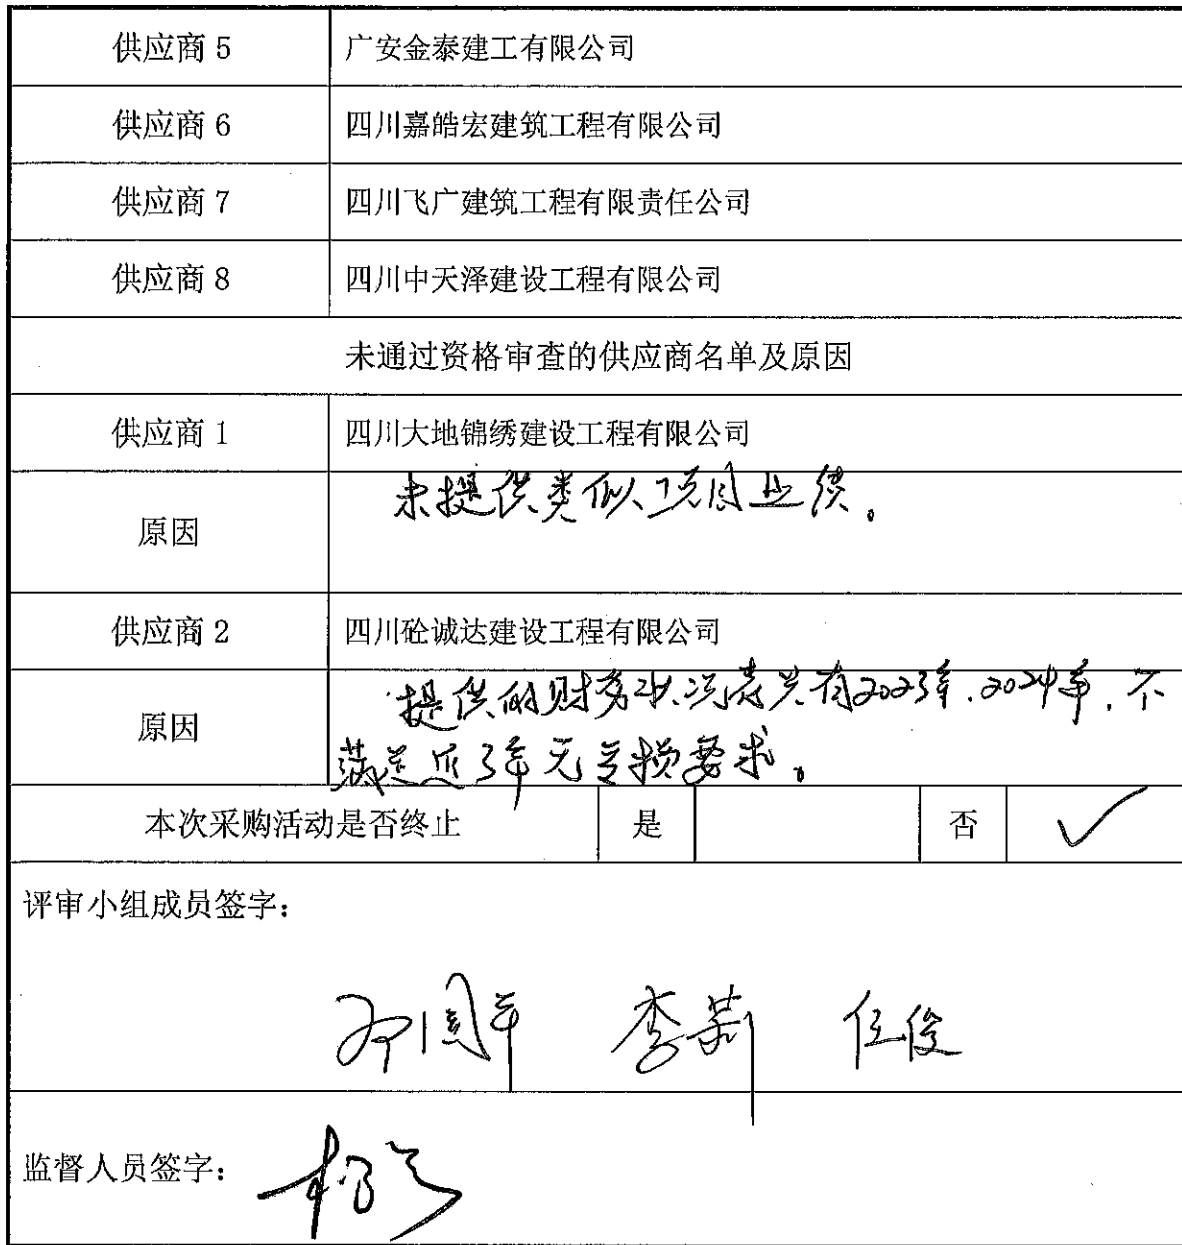 供应商 5 广安金泰建工有限公司
供应商 6 四川嘉皓宏建筑工程有限公司
供应商 7 四川飞广建筑工程有限责任公司
供应商 8 四川中天泽建设工程有限公司
未通过资格审查的供应商名单及原因
供应商 1 四川大地锦绣建设工程有限公司
未提供类似项目业绩。
原因
供应商 2 四川砼诚达建设工程有限公司
提供的财务状况表只有2023年、2024年，不
原因
满足近3年无亏损要求。
本次采购活动是否终止 是 否 ✓
评审小组成员签字：
李莉 任俊
监督人员签字：